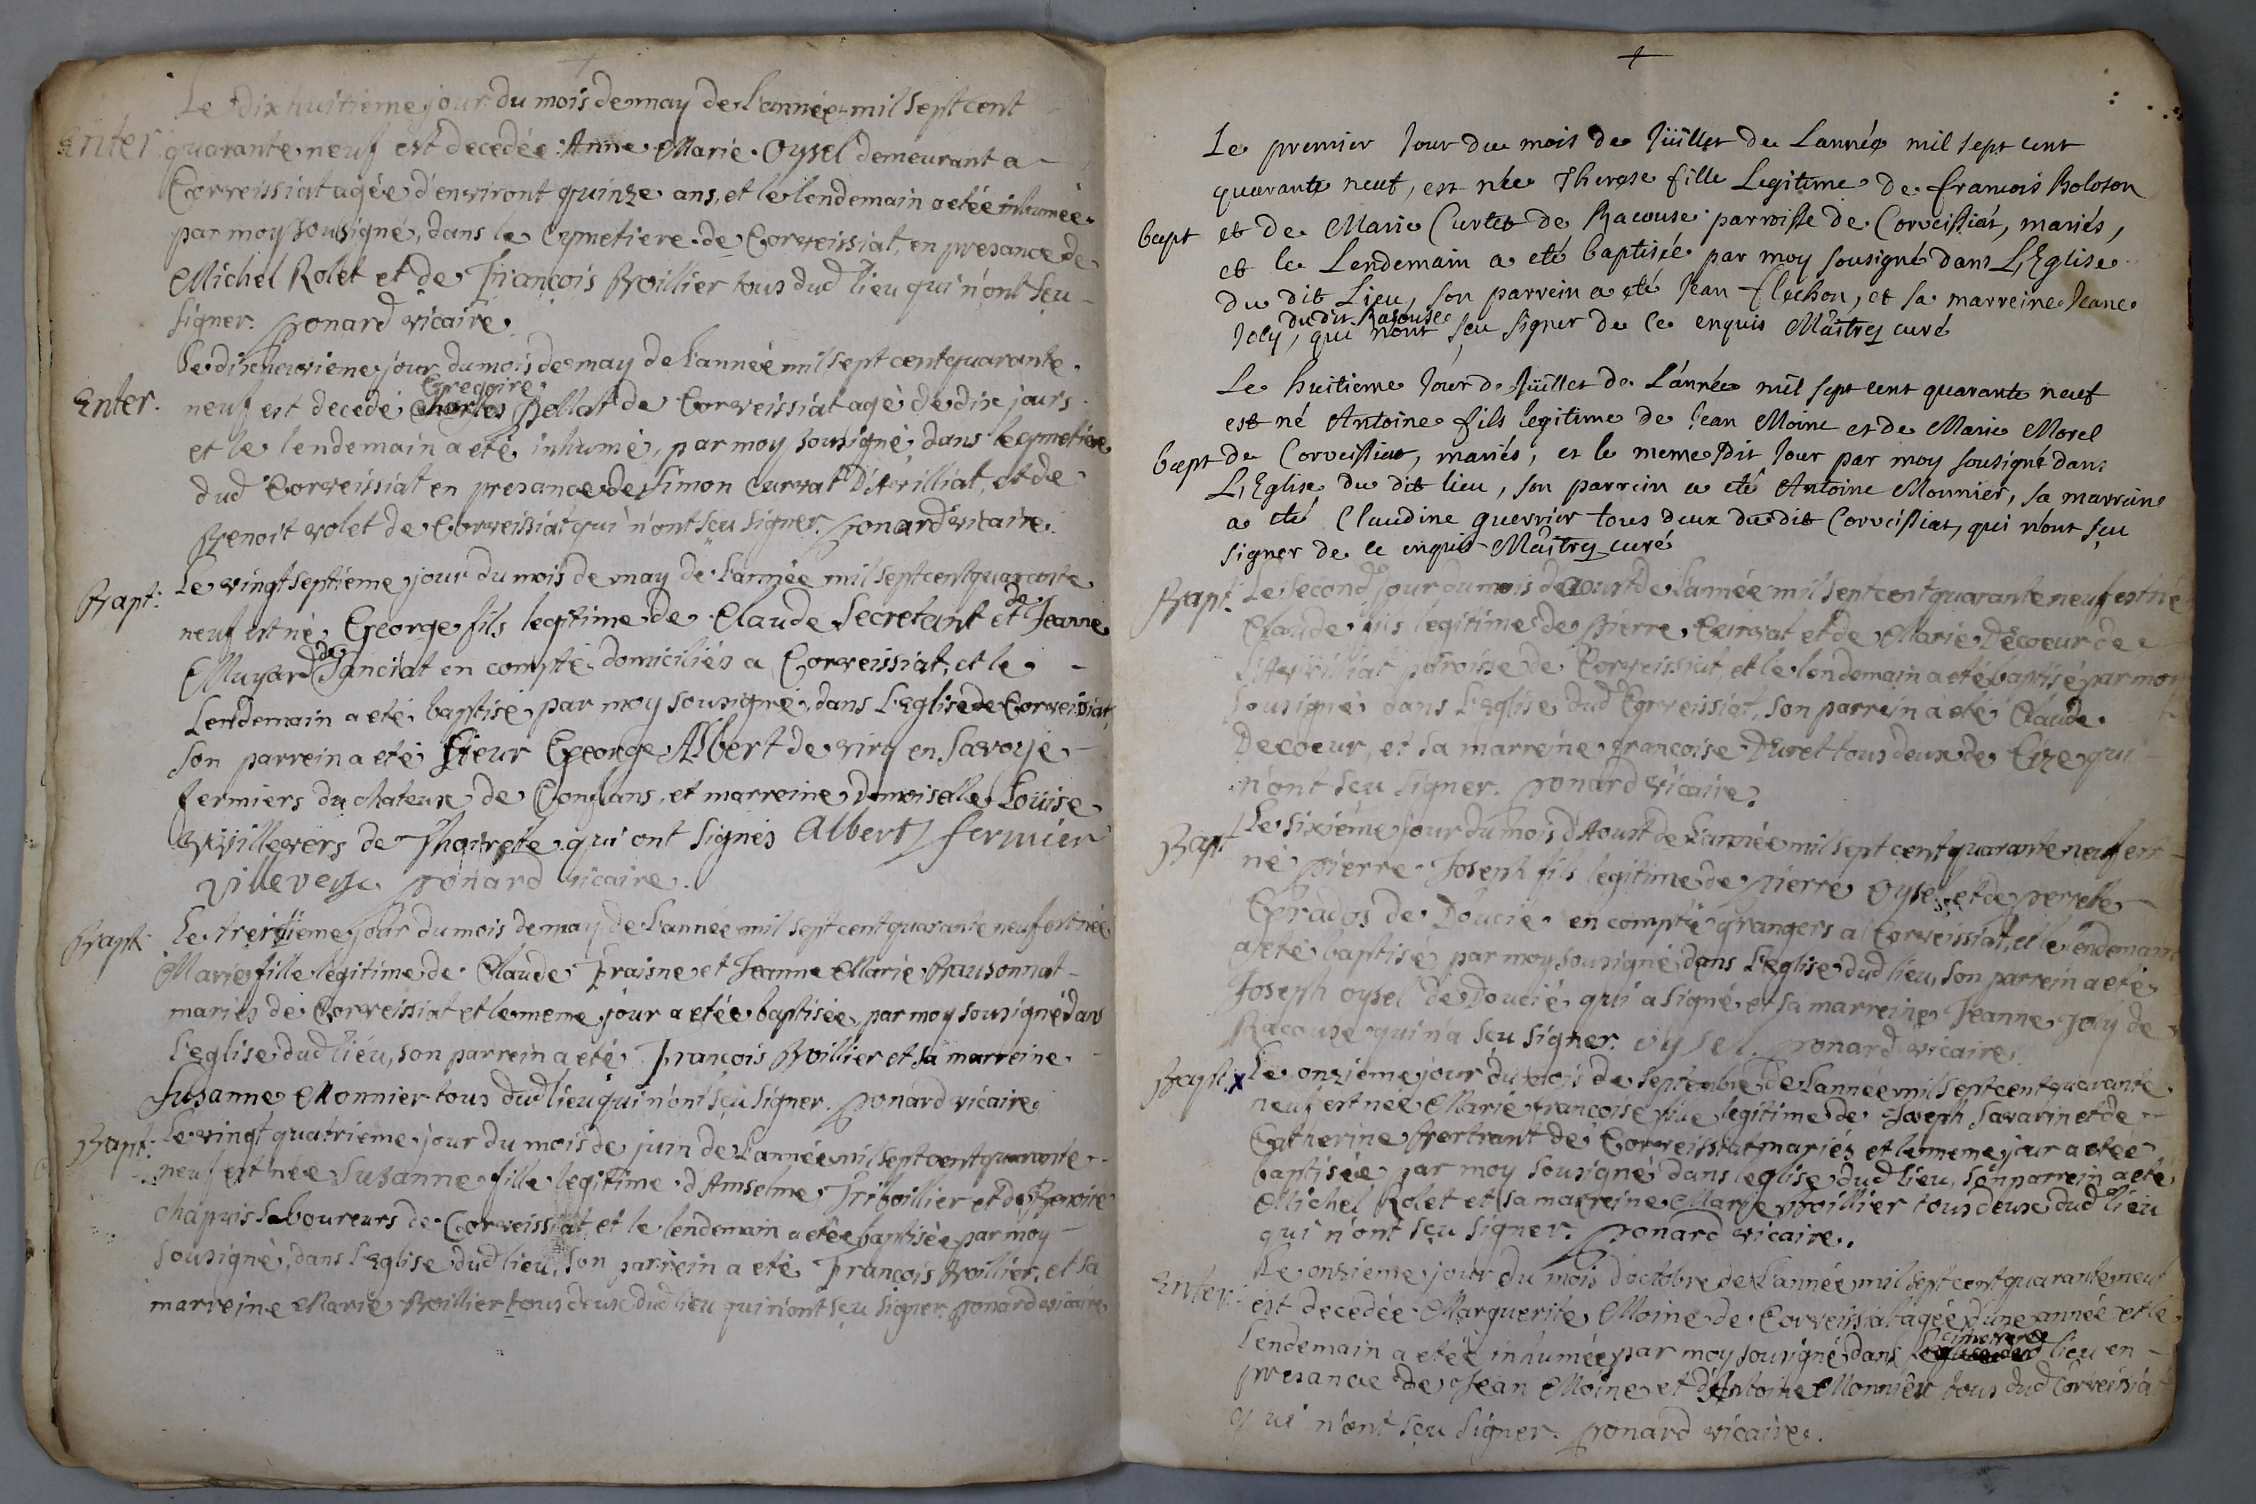 Le dixhuitieme jour du mois de may de L'année mil sept cent
Enter. quarante neuf est decedée Anne Marie Oysel demeurant a
Corveissiat agée d'environt quinze ans, et le lendemain a etée inhumée
par moy sousigné, dans le cymetiere de Corveissiat, en presance de
Michel Rolet et de François Boillier tous dud lieu qui n'ont sçu
signer. ponard vicaire.
Le dixneuvieme jour du mois de may de L'année mil sept cent quarante
Gregoire
Enter. neuf est decedé Charles Bellat de Corveissiat agé de dix jours
et le lendemain a eté inhumé, par moy sousigné, dans le cymetiere
dud Corveissiat en presance de Simon Curvat D'Arvilliat, et de
Benoit rolet de Corveissiat qui n'ont sçu signer. ponard vicaire.
Bapt. Le vingt septieme jour du mois de may de L'année mil sept cent quarante
neuf est né George fils legitime de Claude Secretant et de Jeanne
Muyard de Sanciat en compté domiciliés a Corveissiat, et le
Lendemain a eté baptisé par moy sousigné, dans L'Eglise de Corveissiat,
Son parrein a eté Sieur George Albert de viry en Savoye
fermiers du chateux de Conflans, et marreine Demoiselle Loüise
Villevers de Thoirete qui ont signés Albert fermier
Villeverse ponard vicaire.
Bapt. Le treizieme jour du mois de may de L'année mil sept cent quarante neuf est née
Marie fille legitime de Claude Fraisne et Jeanne Marie Bausonnat
mariés de Corveissiat et le meme jour a etée baptisée, par moy sousigné dans
L'eglise dud lieu, son parrein a eté François Boillier et sa marreine
Susanne Monnier tous dud lieu qui n'ont sçu signer. ponard vicaire.
Bapt. Le vingt quatrieme jour du mois de juin de L'année mil sept cent quarante
neuf est née Susanne fille legitime d'Anselme Triboillier et de Benoite
chapuis laboureurs de Corveissiat et le lendemain a etée baptisée par moy
Sousigné, dans L'Eglise dud lieu, son parrein a eté François Boillier, et sa
marreine Marie Boillier tous deux dud lieu qui n'ont sçu signer. ponard vicaire
Le premier Jour du mois de Jüillet de Lannée mil sept cent
quarante neuf, est née Therese fille Legitime de francois Boloson
bapt et de Marie Curtet de Racouse parroisse de Corveissiat, mariés,
et le Lendemain a eté baptisée par moy sousigné dans L'Eglise
du dit Lieu, son parrein a eté Jean flechon, et sa marreine Jeane
du dit Racouse
Joly, qui n'ont sçu signer de ce enquis Maîtrey curé
Le huitieme Jour de Jüillet de L'année mil sept cent quarante neuf
est né Antoine fils legitime de Jean Moine et de Marie Morel
bapt de Corveissiat, mariés, et le meme Dit Jour par moy sousigné dans
L'Eglise du dit lieu, son parrein a eté Antoine Monnier, sa marreine
a eté Claudine guerrier tous deux du dit Corveissiat, qui n'ont sçu
signer de ce enquis Maîtrey curé
Bapt. Le second jour du mois d'aoust de L'année mil sept cent quarante neuf est né
Claude fils legitime de pierre Curvat et de Marie Decoeur de
D'Arvilliat paroisse de Corveissiat, et le lendemain a eté baptisé par moy
Sousigné dans L'Eglise dud Corveissiat, son parrein a eté Claude
Decoeur, et sa marreine françoise Duret tous deux de Cize qui
n'ont sçu signer. ponard vicaire.
Bapt. Le sixieme jour du mois d'Aoust de L'année mil sept cent quarante neuf est
né pierre Joseph fils legitime de pierre Oysel et de perrette
Grados de Doucie en compté grangers a Corveissiat, et le lendemain
a eté baptisé par moy sousigné dans L'eglise dud lieu, son parrein a eté
Joseph oysel de Doucié, qui a signé et sa marreine Jeanne Joly de
Racouse qui n'a sçu signer. oysel. ponard vicaire.
Bapt. x Le onzieme jour du mois de septembre de L'année mil sept cent quarante
neuf est née Marie françoise fille legitime de Joseph Savarin et de
Catherine Bertrant de Corveissiat mariés et le meme jour a etée
baptisée par moy sousigné dans l'eglise dud lieu, son parrein a eté
Michel Rolet et sa marreine Marie Boillier tous deux dud lieu
qui n'ont sçu signer. ponard vicaire.
Le onzieme jour du mois d'octobre de L'année mil sept cent quarante neuf
Enter. est decedée Marguerite Moine de Corveissiat agée d'une année et le
cimetiere
Lendemain a etée inhumée par moy sousigné dans lieu en
presance de Jean Moine et d'Antoine Monnier tous dud Corveissiat
qui n'ont sçu signer. ponard vicaire.